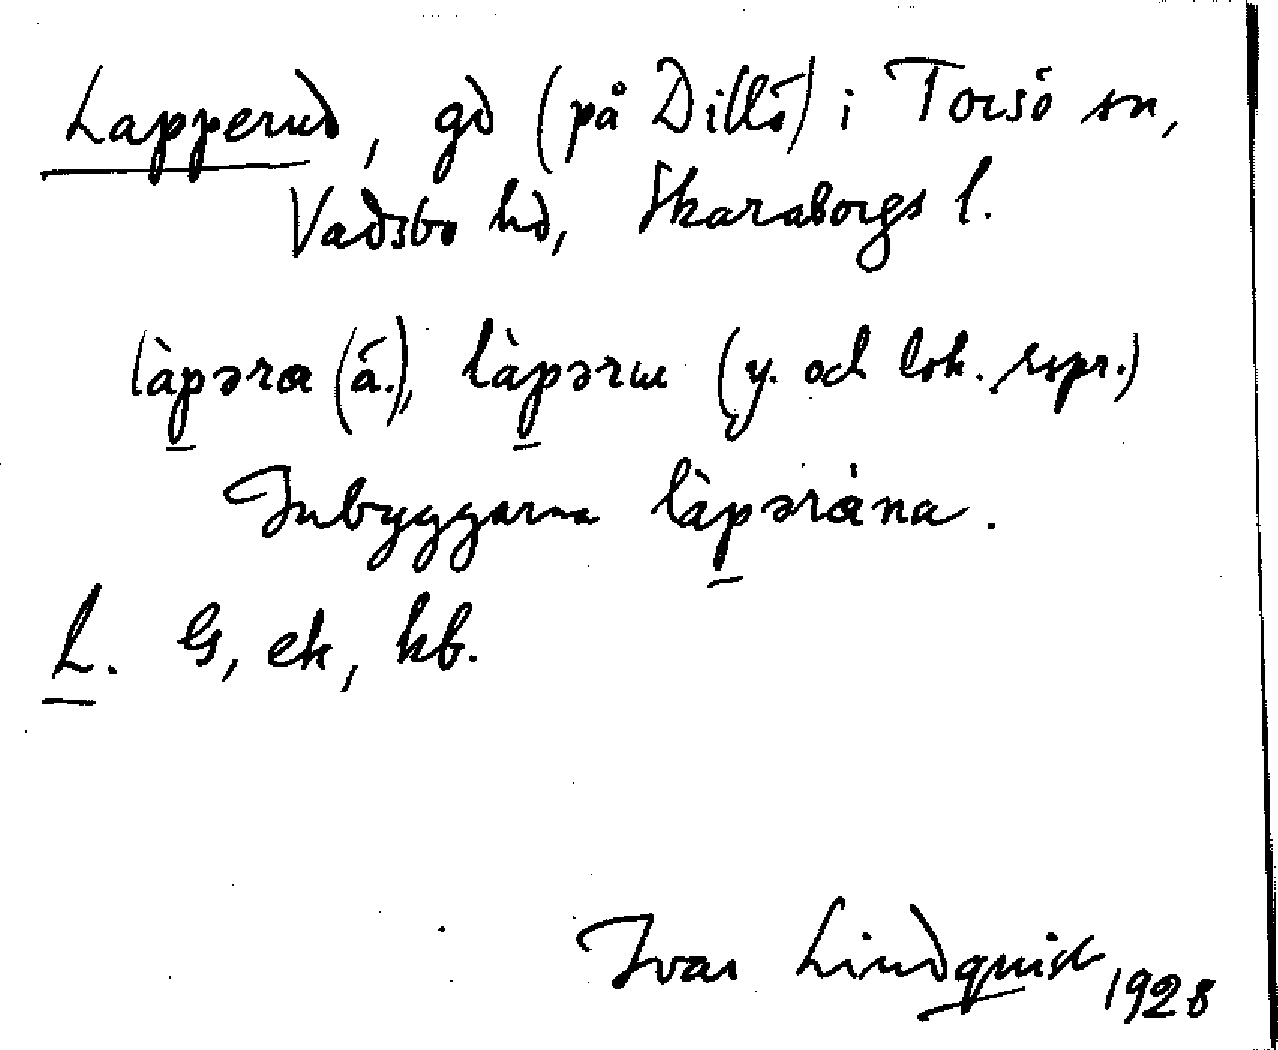 Lapperud, gd (på Dillö) i Torsö sn,
Vadsbo hd, Skaraborgs l.
làpəra (ä.), làpərɯ (y. och lok. rspr.)
Inbyggarna làpərána.
L. G, ek, kb.
Ivar Lindquist 1928